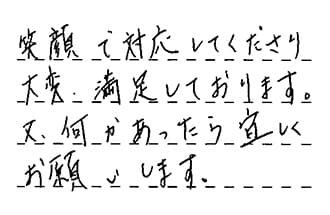 笑顔で対応してくださり
大変、満足しております。
又、何かあったら宜しく
お願いします。